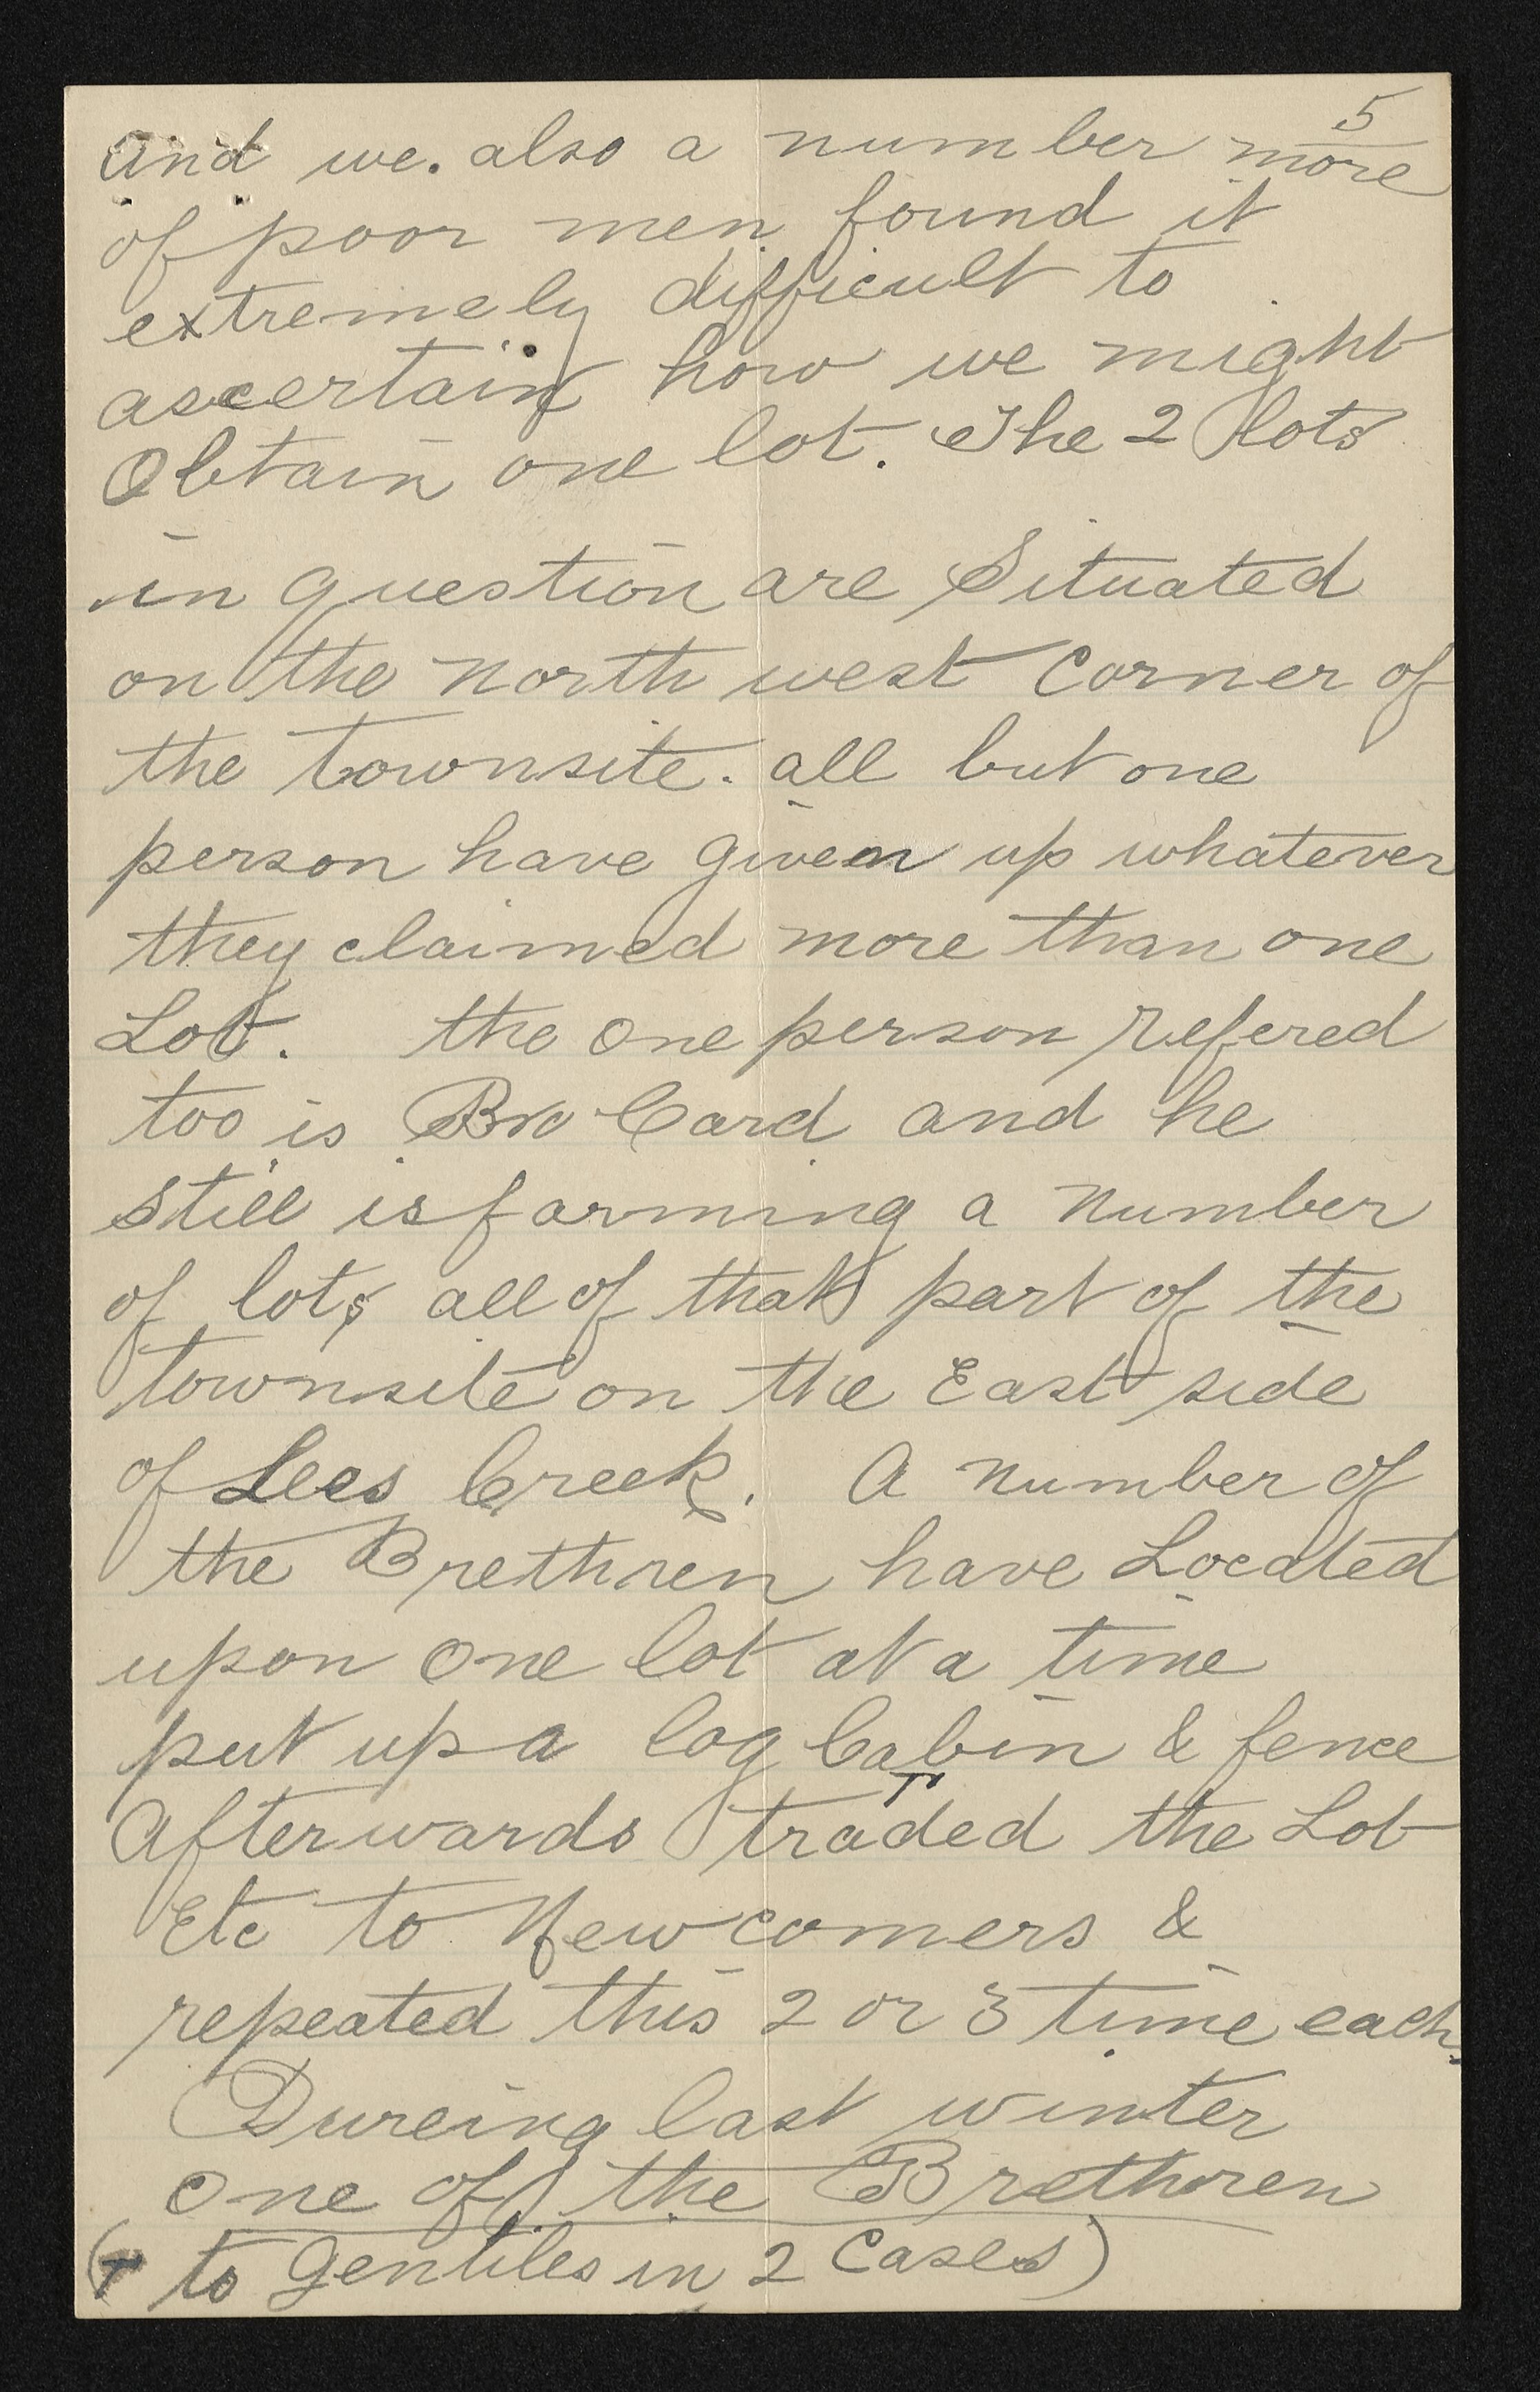 5
and we. also a number more
of poor men found it
extremely difficult to
ascertain how we might
Obtain one lot. The 2 lots
in question are Situated
on the North west Corner of
the townsite. all but one
person have given up whatever
they claimed more than one
Lot. the one person refered
too is Bro Card and he
still is farming a number
of lots all of that part of the
townsite on the East side
of Lees Creek. A number of
the Brethren have Located
upon one lot at a time
put up a log Cabin & fence
Afterwards traded the Lot
Etc to New comers &
repeated this 2 or 3 time each.
Dureing last winter
one of the Brethren
(+ to Gentiles in 2 Cases)